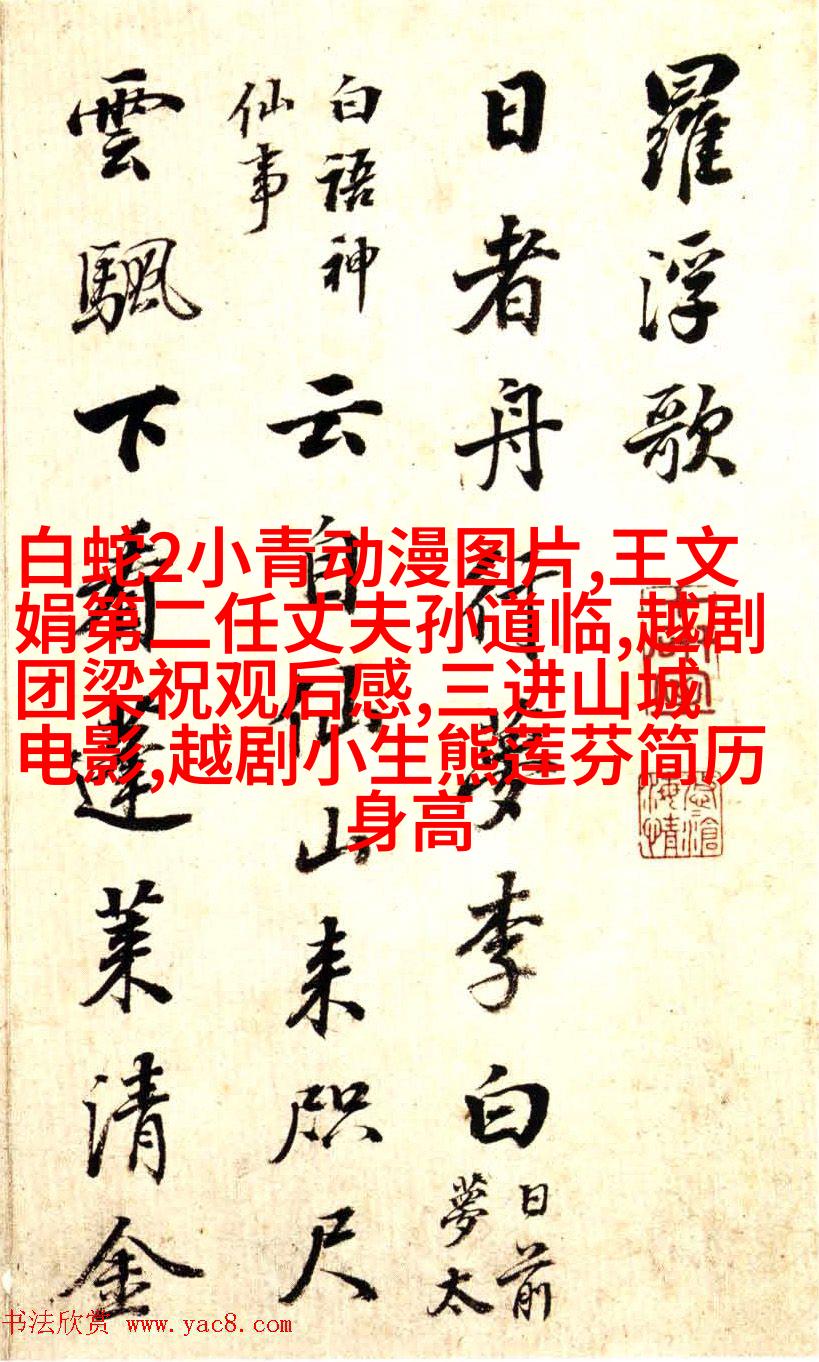 羅浮歌
日者舟行夢李白
日前
夢太
白語神
仙事
云自仙山来咫尺
雲颿下看蓬莱清金
白蛇2小青动漫图片,王文
娟第二任丈夫孙道临,越剧
团梁祝观后感,三进山城
电影,越剧小生熊莲芬简历
身高
书法欣赏 www.yac8.com